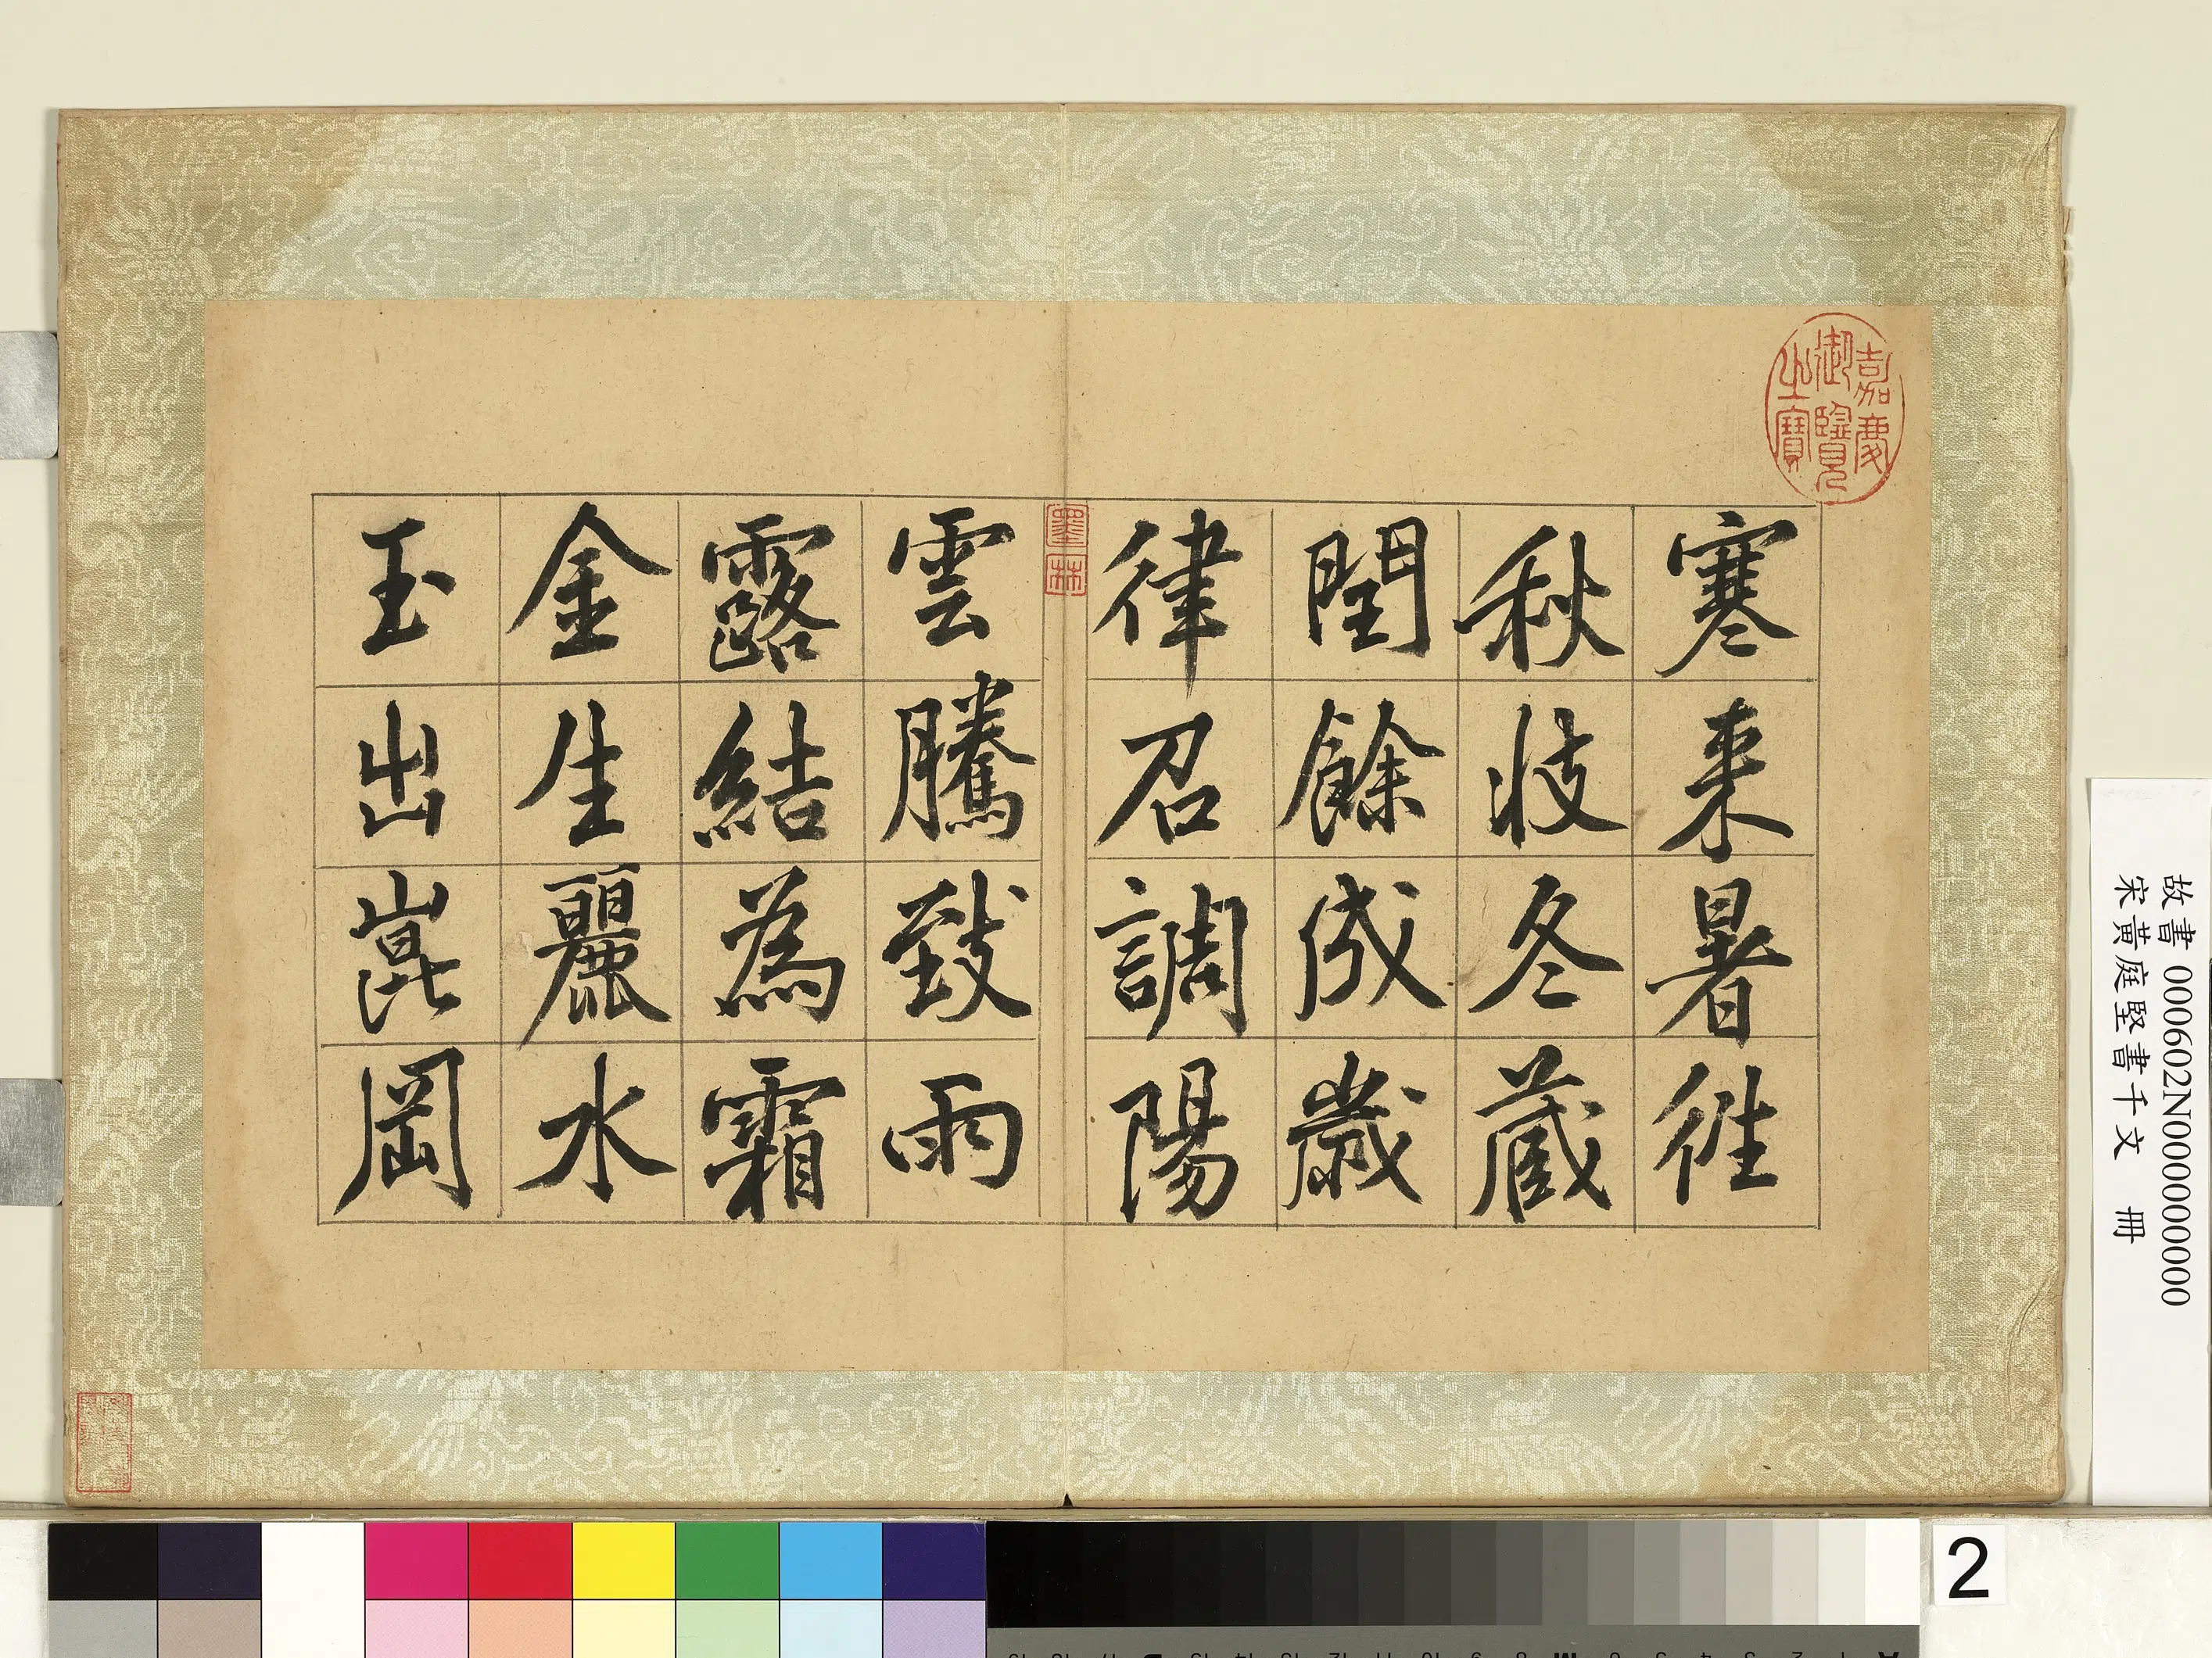 嘉慶
御覽
之寶
寒来暑往
秋收冬蔵
閏餘成歲
律召調陽
墨林
雲騰致雨
露結為霜
金生麗水
玉出崑岡
故書 000602N000000000
宋黃庭堅書千文 冊
2